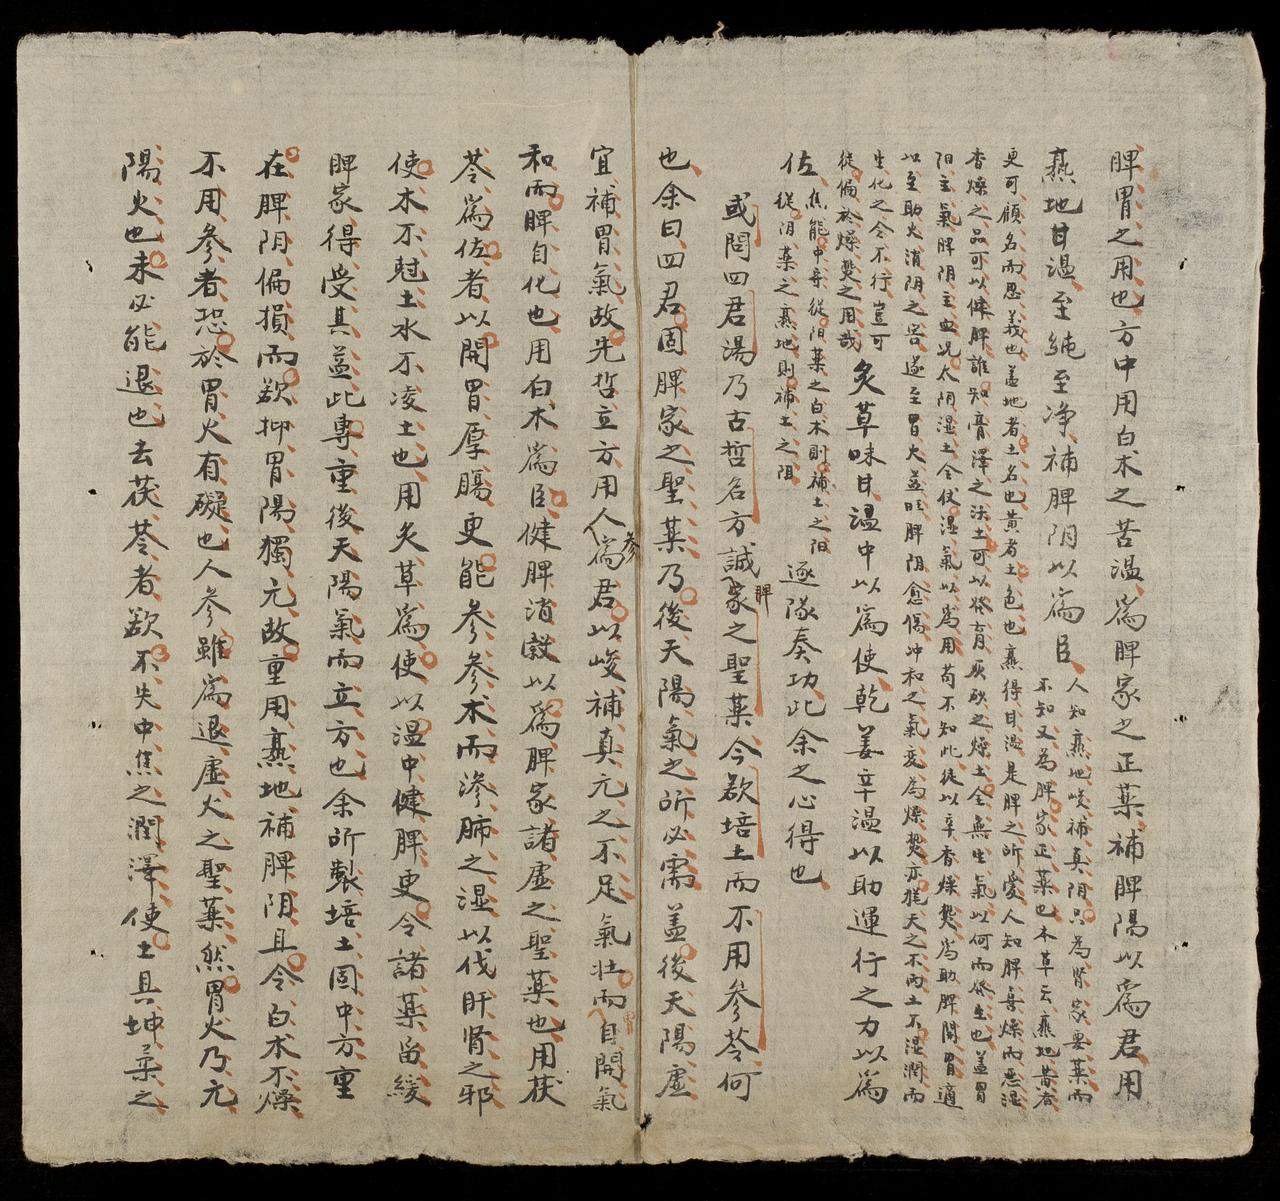 脾胃之用也方中用白朮之苦溫爲脾家之正薬補脾陽以爲君用
熹地甘溫至純至净補脾阴以爲臣
人知熹地峻補真阴只為肾家要薬而
不知又为脾家正薬也本草云熹地黄者
更可顧名而思義也盖地者土名也黄者土色也熹得甘温是脾之所愛人知脾喜燥而悪湿
香燥之品可以健脾誰知膏澤之沐土可以發育灰砍之燥土全無生氣以何而發生也盖胃
阳主氣脾阴主血况太阴湿土全仗湿氣以爲用苟不知此徒以辛香燥熱爲助脾開胃適
以至助火消阴之咎遂至胃火益旺脾阴愈傷冲和之氣变為燥熱亦猶天之不雨土不湿潤而
生化之令不行豈可
徒偏於燥熱之用哉
炙草味甘溫中以爲使乾姜辛温以助運行之力以爲
佐
焦能中帝從阳薬之白朮則補土之阳
從阴薬之熹地則補土之阻
逐隊奏功此余之心得也
或問四君湯乃古哲名方誠脾家之聖薬今欲培土而不用參苓何
也余曰四君固脾家之聖薬乃後天陽氣之所必需盖後天陽虚
宜補胃氣故先哲立方用人參爲君以峻補真元之不足氣壮而胃自開氣
和而脾自化也用白朮爲臣健脾消穀以爲脾家諸虚之聖薬也用茯
苓爲佐者以開胃厚腸更能參參朮而滲肺之湿以伐肝肾之邪
使木不尅土水不凌土也用炙草爲使以温中健脾更令諸薬留緩
脾家得受其益此專重後天陽氣而立方也余所製培土固中方重
在脾阴偏損而欲抑胃陽獨亢故重用熹地補脾阴且令白朮不燥
不用參者恐於胃火有礙也人參雖爲退虚火之聖薬然胃火乃亢
陽火也未必能退也去茯苓者欲不失中焦之潤澤使土具坤柔之